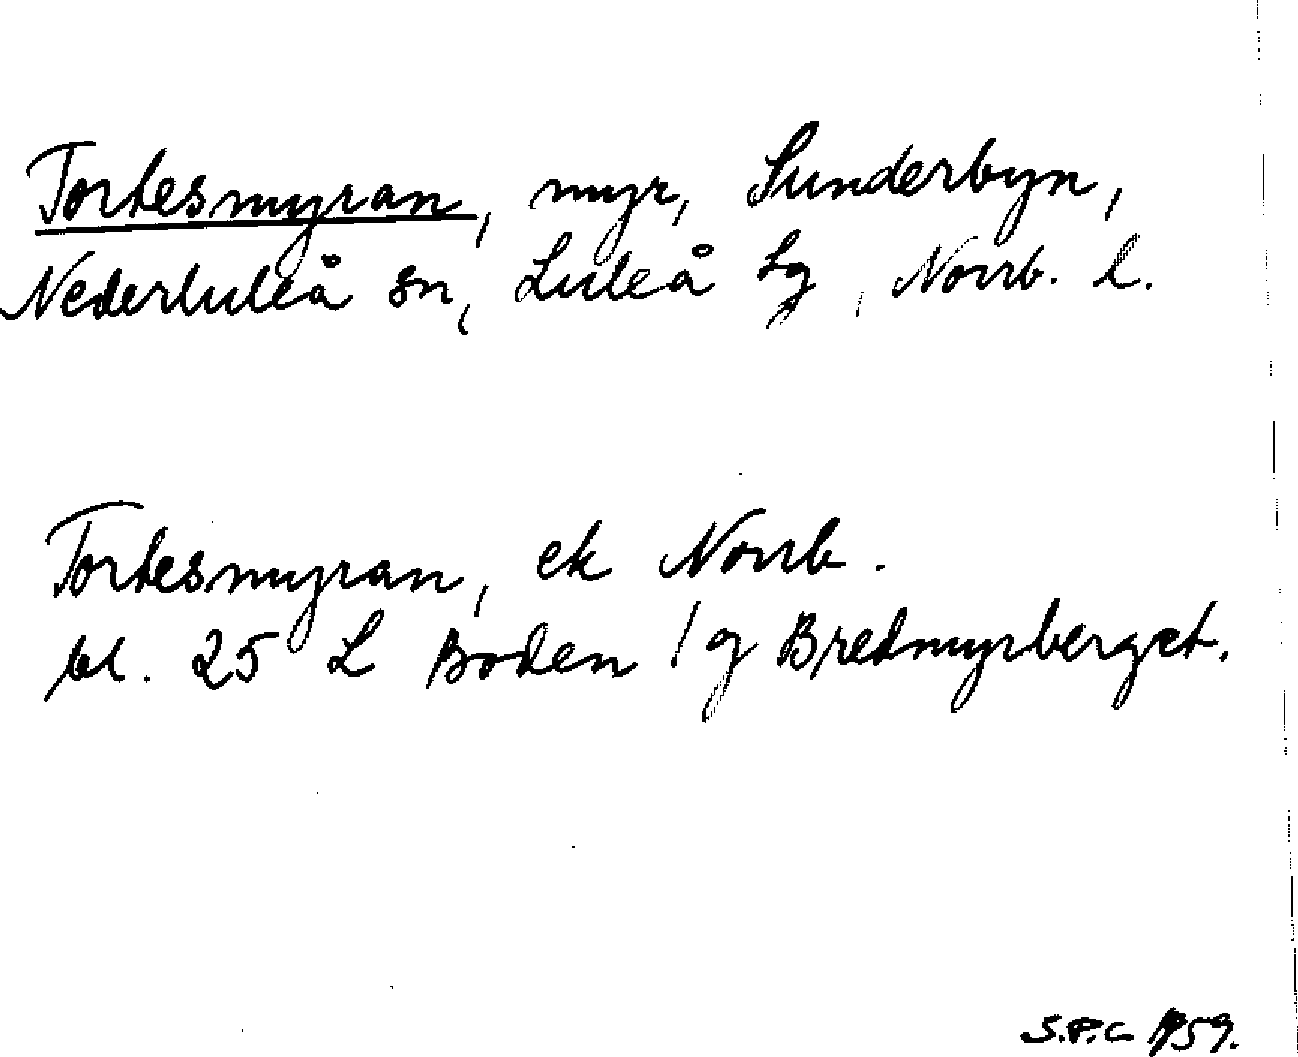 Tortesmyran, myr, Sunderbyn,
Nederluleå sn, Luleå tg, Norrb. l.
Tortesmyran, ek Norrb.
bl. 25 L Boden / g Bredmyrberget.
S.P.C 1959.